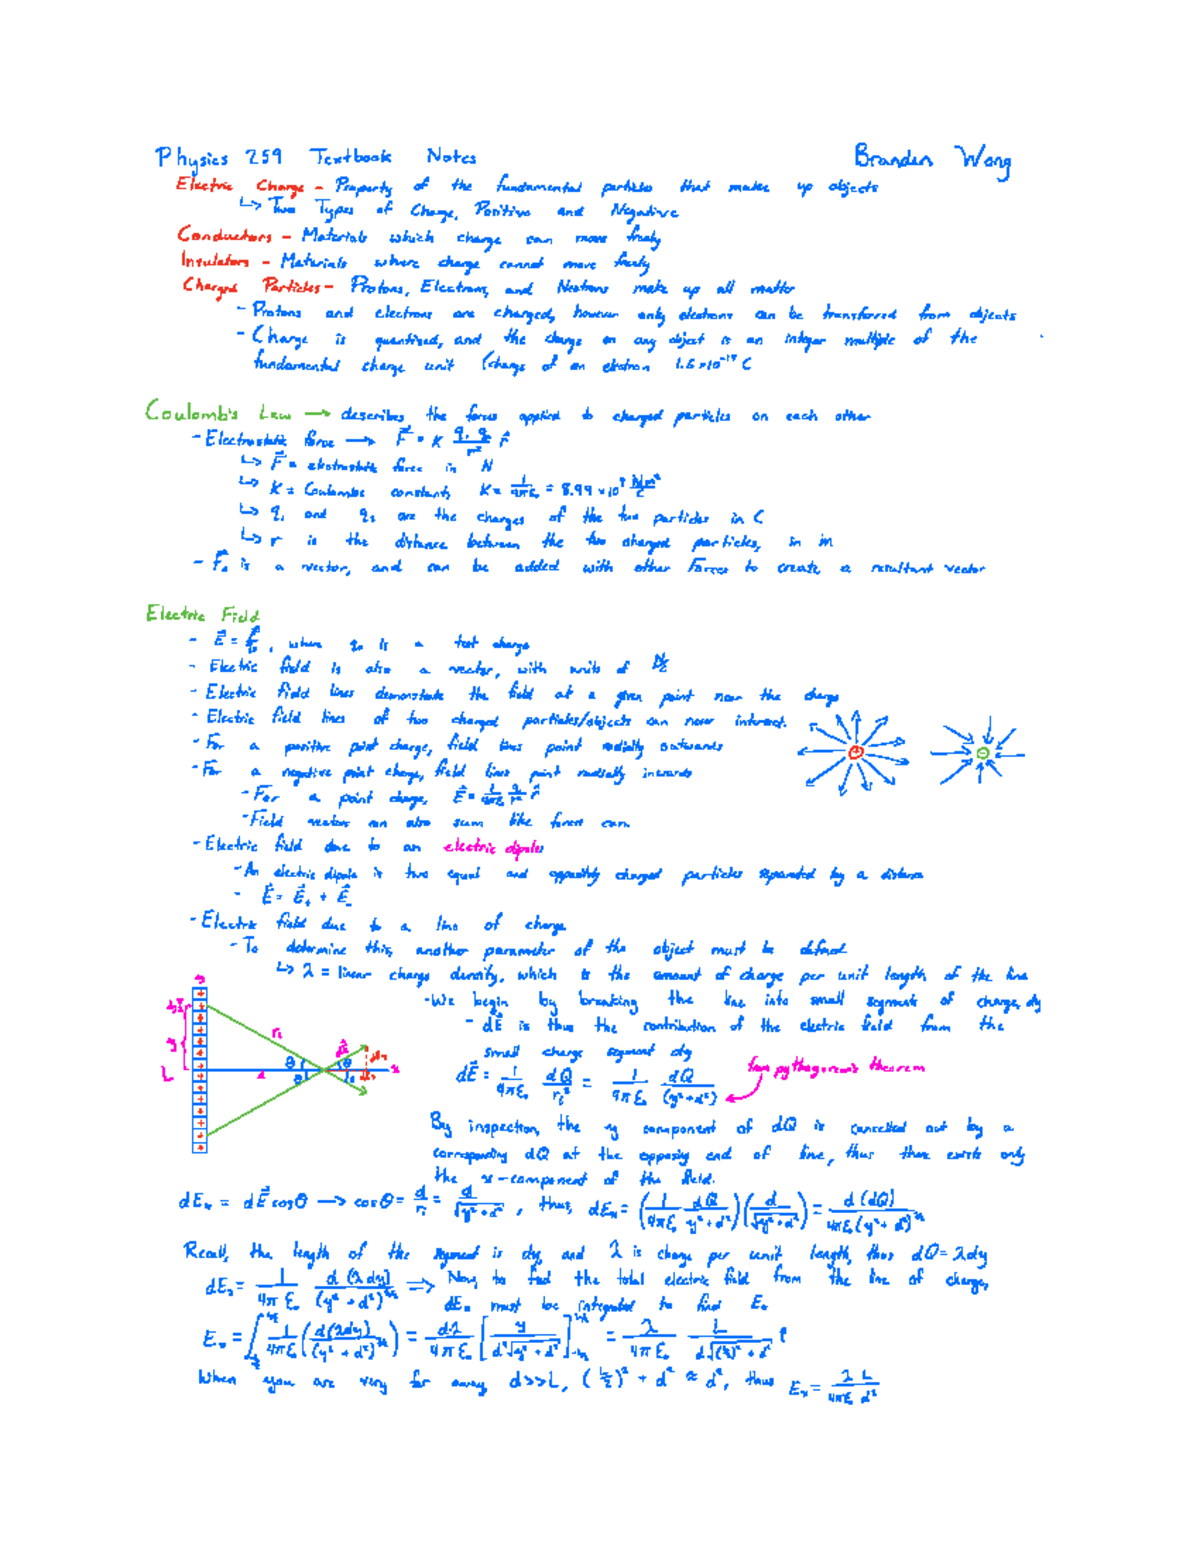 Physics 259 Textbook Notes
Branden Wong
Electric Charge - Property of the fundamental particles that makes up objects
↳ Two Types of Charge, Positive and Negative
Conductors - Materials which charge can move freely
Insulators - Materials where charge cannot move freely
Charged Particles - Protons, Electrons, and Neutrons make up all matter
- Protons and electrons are charged, however only electrons can be transferred from objects
- Charge is quantized, and the charge on any object is an integer multiple of the
fundamental charge unit (charge of an electron 1.6×10⁻¹⁹ C
Coulomb's Law → describes the forces applied to charged particles on each other
- Electrostatic force → F⃗ = K q₁ q₂ / r² r̂
↳ F⃗ = electrostatic force in N
↳ K = Coulombs constant, K = 1/4πε₀ = 8.99 ×10⁹ Nm²/C
↳ q₁ and q₂ are the charges of the two particles in C
↳ r is the distance between the two charged particles, in m
- F⃗ₑ is a vector, and can be added with other Forces to create a resultant vector
Electric Field
- E⃗ = F⃗/q₀, where q₀ is a test charge
- Electric field is also a vector, with units of N/C
- Electric field lines demonstrate the field at a given point near the charge
- Electric field lines of two charged particles/objects can never intersect.
- For a positive point charge, field lines point radially outwards
- For a negative point charge, field lines point radially inwards
- For a point charge, E⃗ = 1/4πε₀ q/r² r̂
- Field vectors can also sum like forces can.
- Electric field due to an electric dipole
- An electric dipole is two equal and oppositely charged particles separated by a distance
- E⃗ = E⃗₊ + E⃗₋
- Electric field due to a line of charge
- To determine this, another parameter of the object must be defined
↳ λ = linear charge density, which is the amount of charge per unit length of the line
- We begin by breaking the line into small segments of charge, dy
- dE⃗ is thus the contribution of the electric field from the
small charge segment dy
dE⃗ = 1/4πε₀ dQ/r₁² = 1/4πε₀ dQ/(y²+d²)
from pythagorean theorem
By inspection, the y component of dQ is cancelled out by a
corresponding dQ at the opposing end of line, thus there exists only
the x-component of the field.
dEₓ = dE⃗ cosθ → cosθ = d/r₁ = d/√(y²+d²), thus, dEₓ = (1/4πε₀ dQ/(y²+d²))(d/√(y²+d²)) = d(dQ)/4πε₀(y²+d²)^3/2
Recall, the length of the segment is dy, and λ is charge per unit length, thus dQ = λdy
dEₓ = 1/4πε₀ d(λdy)/(y²+d²)^3/2 → Now, to find the total electric field from the line of charge,
dEₓ must be integrated to find Eₓ
Eₓ = ∫ 1/4πε₀ (d(λdy)/(y²+d²)^3/2) = dλ/4πε₀ [y/d²√(y²+d²)] = λ/4πε₀ L/d√((L/2)²+d²) î
When you are very far away, d>>L, (L/2)² + d² ≈ d², thus Eₓ = λL/4πε₀d²